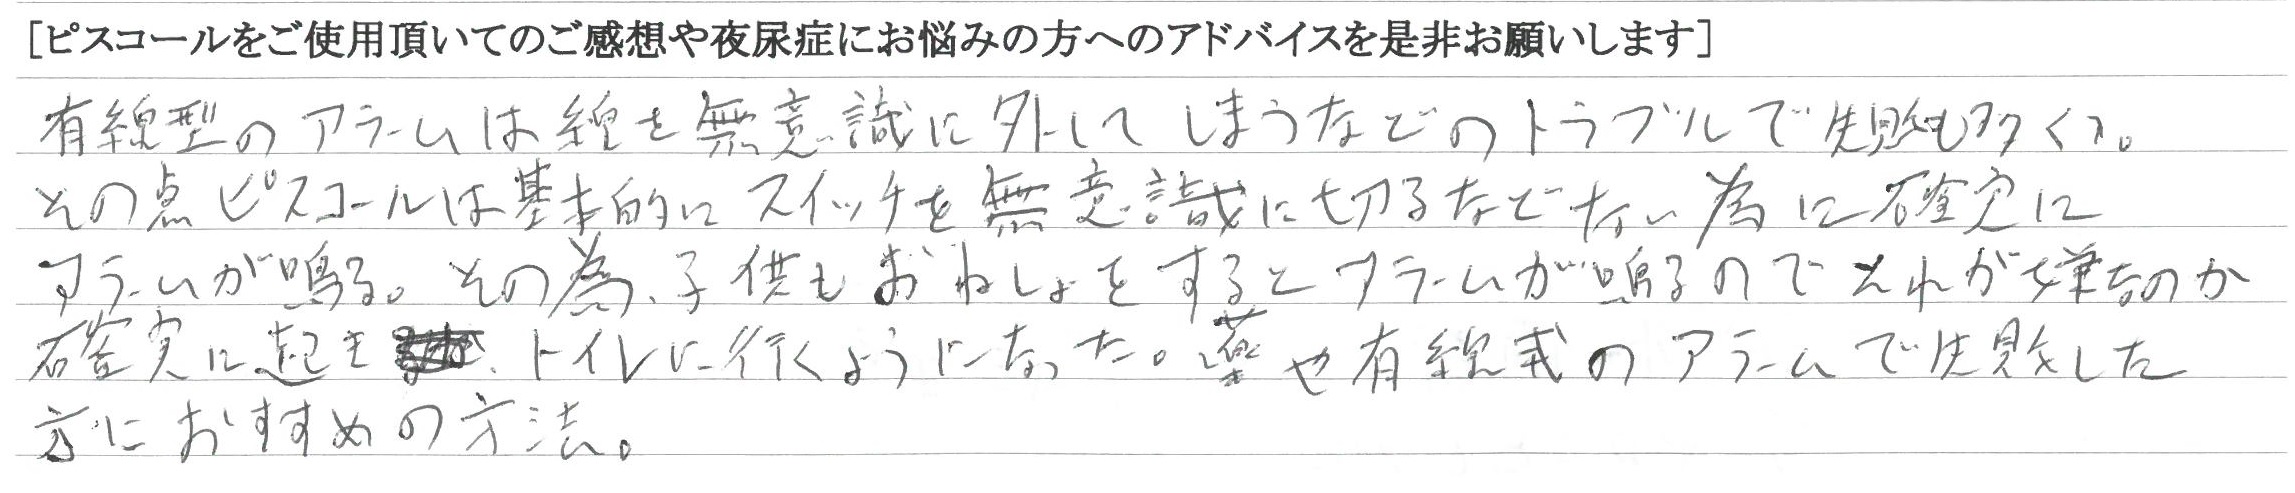 [ピスコールをご使用頂いてのご感想や夜尿症にお悩みの方へのアドバイスを是非お願いします]
有線型のアラームは線を無意識に外してしまうなどのトラブルで失敗も多く。
その点ピスコールは基本的にスイッチを無意識に切るなどない為に確実に
アラームが鳴る。その為、子供もおねしょをするとアラームが鳴るのでそれが嫌なのか
確実に起き、トイレに行くようになった。薬や有線式のアラームで失敗した
方におすすめの方法。